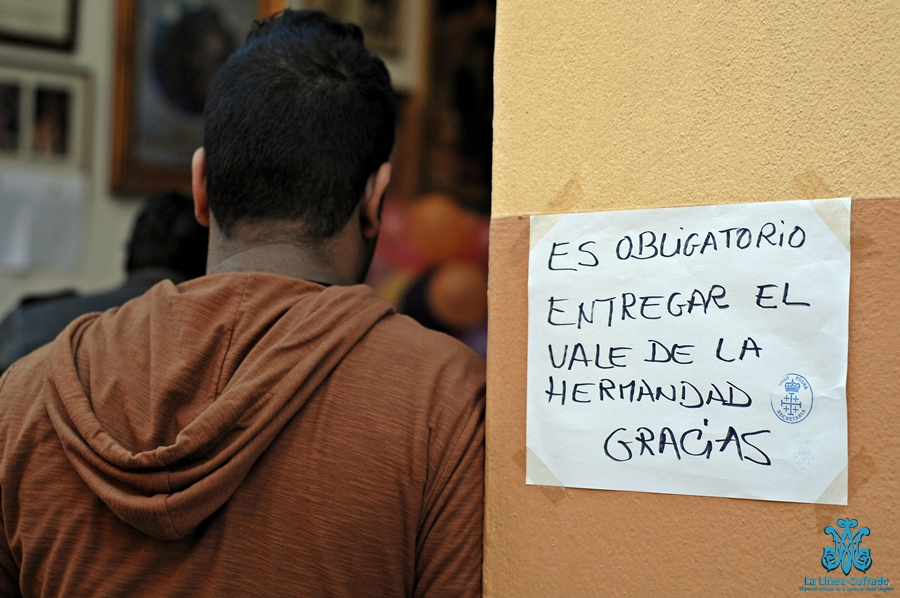 ES OBLIGATORIO
ENTREGAR EL
VALE DE LA
HERMANDAD
GRACIAS
SECRETARIA
La Línea Cofrade